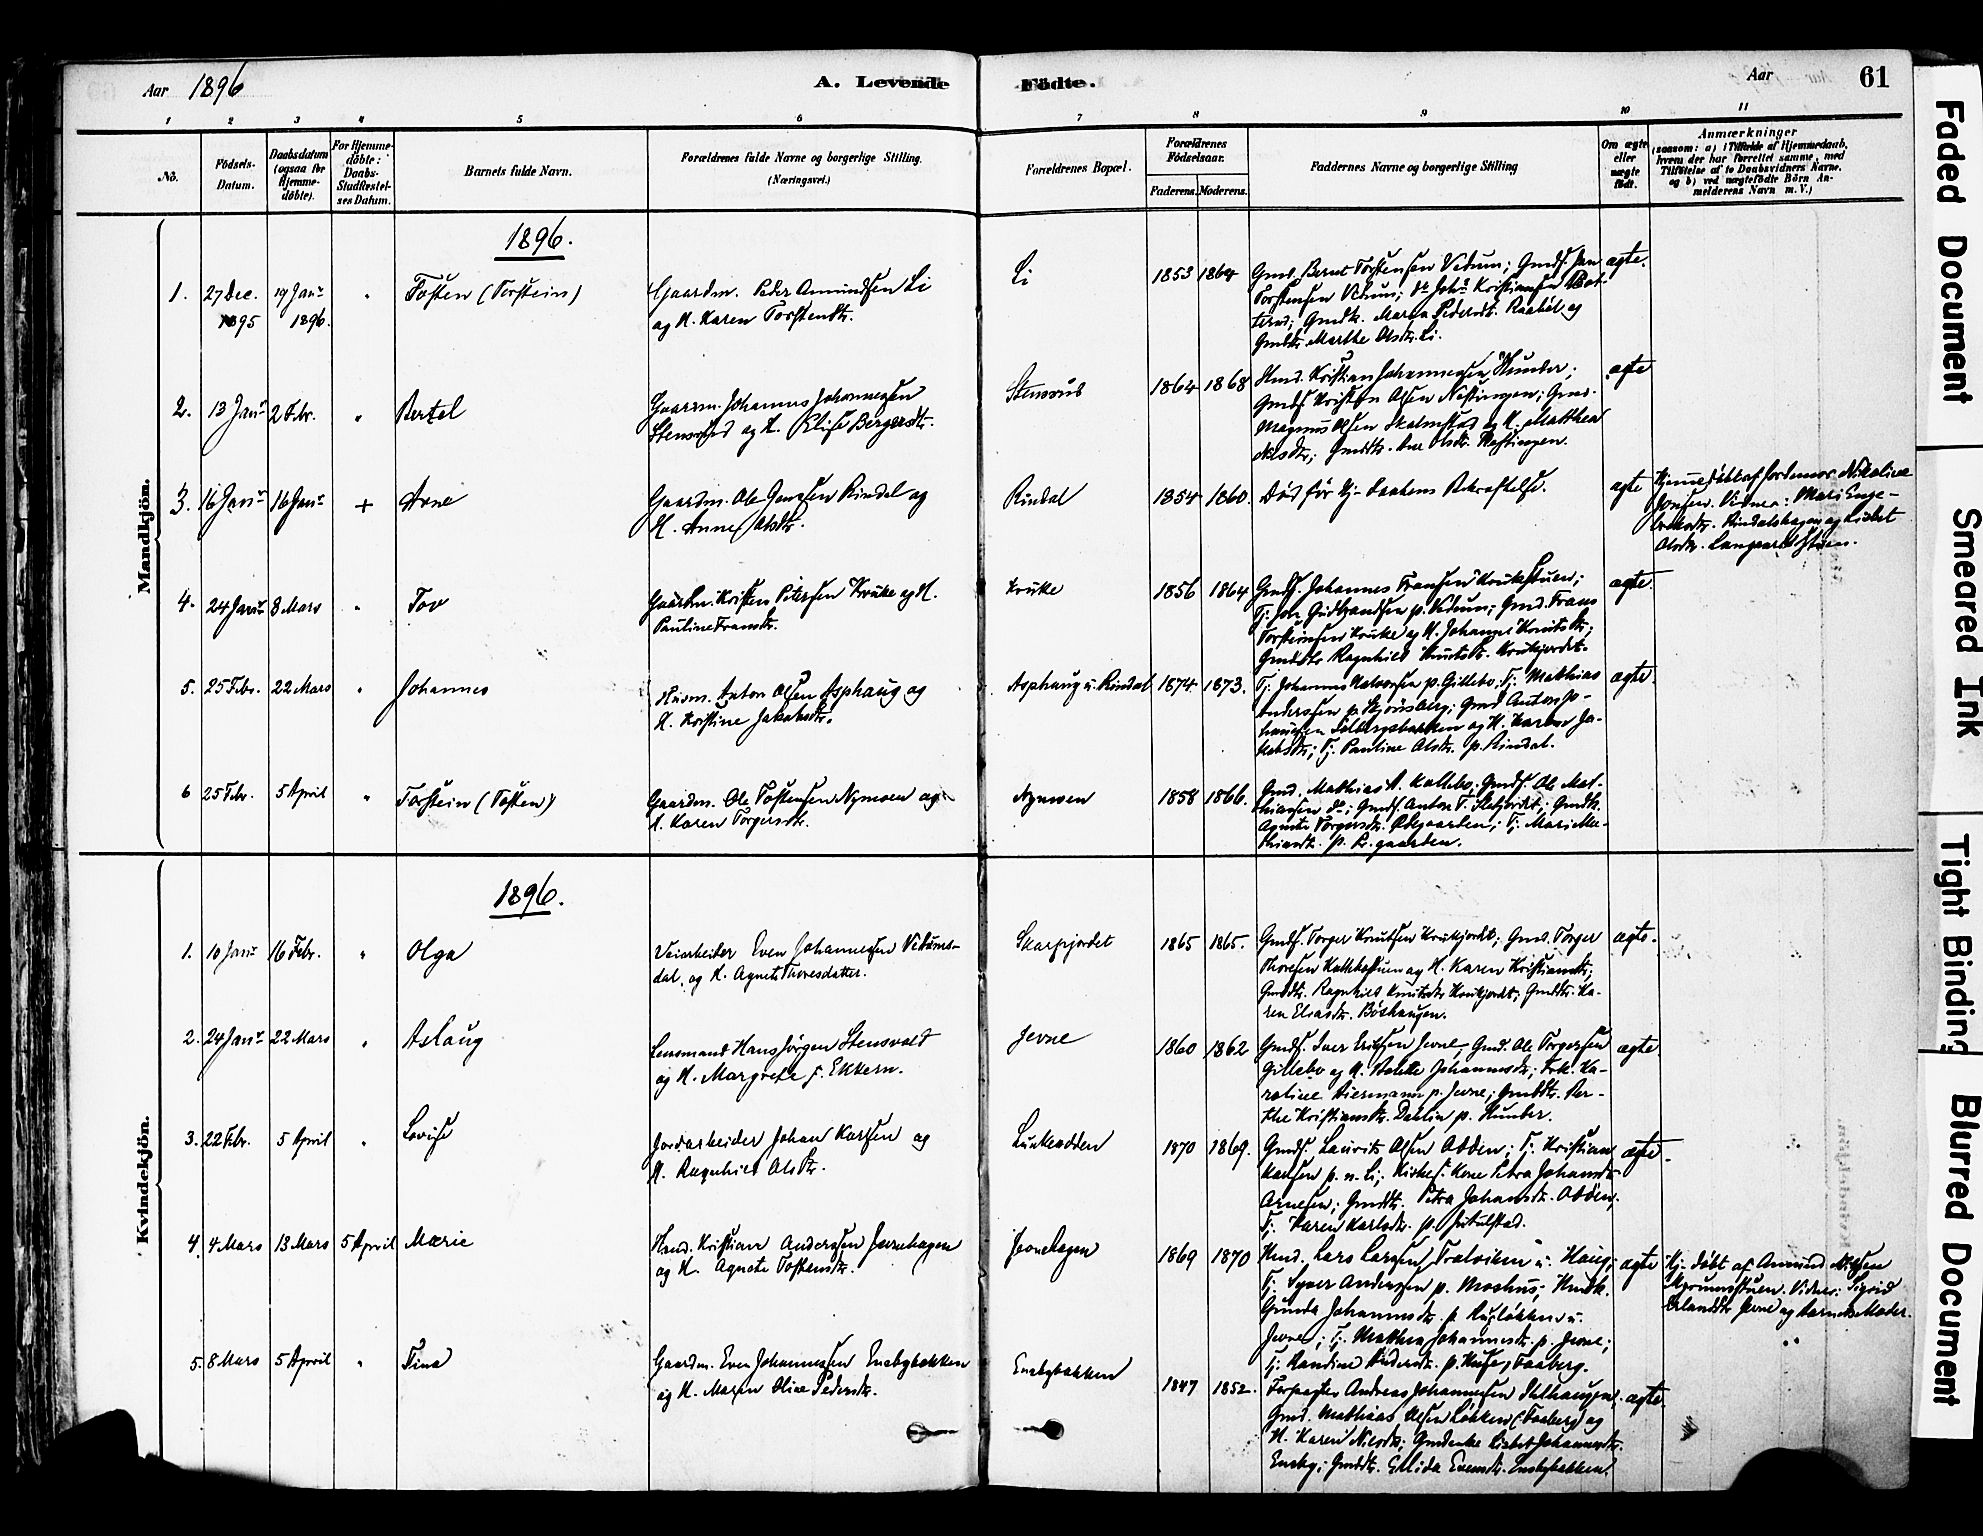 Aar 1896
A. Levende Födte.
Aar
61
1 2 3 4 5 6 7 8 9 10 11
No.
Födsels-
Datum.
Daabsdatum
(ogsaa for
Hjemme-
döbte).
For Hjemme-
döbte:
Daabs-
Stadfæstel-
ses Datum.
Barnets fulde Navn.
Forældrenes fulde Navne og borgerlige Stilling.
(Næringsvei.)
Forældrenes Bopæl.
Forældrenes
Födselsaar.
Faderens. Moderens.
Faddernes Navne og borgerlige Stilling
Om ægte
eller
uægte
födt.
Anmærkninger
(saasom: a) i Tilfælde af Hjemmedaab,
hvem der har forrettet samme, med
Tilföielse af to Daabsvidners Navne,
og b) ved uægtefödte Börn An-
melderens Navn m. V.)
Mandkjön.
1896.
1. 27 Dec. 1895
19 Janr 1896.
"
Tosten (Torstein)
Gaardm. Peder Amundsen Li
og H. Karen Torstensdtr.
Li
1853 1864
Gmd. Bernt Torstensen Vedum; Gmds. Jan
Torstensen Vedum; do Johs Kristiansen
Gmdtr. Maren Pedersdtr. og
Gmdtr. Marthe Olsdtr. Li.
ægte.
2. 13 Janr 2 Febr. "
Bertel
Gaardm. Johannes Johannessen
og H. Elise Bergersdtr.
1864 1868
Hmd. Kristian Johannessen Humber;
Gmds. Kristen Olsen Nestingen; Gmd.
Magnus Olsen Skalmstad og H. Matthea
Nilsdtr; Gmdtr. Ane Olsdtr. Nestingen.
ægte
3. 16 Janr 16 Janr +
Arne
Gaardm. Ole Jensen Rindal og
H. Anne Olsdtr.
Rindal
1854 1860.
Död för Hj. daabens Bekræftelse.
ægte
Hjemmedöbt af Jordemor Nikoline
Jonsen. Vidner: Mari Enge-
bretsdtr. Rindalshagen og Lisbet
Olsdtr.
4. 24 Janr 8 Mars "
Tov
Gaardm. Kristen Petersen Kruke og H.
Pauline Fransdtr.
Kruke
1856 1864
Gmds. Johannes Fransen Krukestuen;
Tj. Joh. Gudbrandsen p. Vedum; Gmd. Frans
Torstensen Kruke og H. Johanne Knutsdtr;
Gmdtr. Ragnhild Knutsdtr. Krukjordet.
ægte.
5. 25 Febr. 22 Mars "
Johannes
Husm. Anton Olsen Asphaug og
H. Kristine Jakobsdtr.
Asphaug u. Rindal
1874 1873.
Tj. Johannes Halvorsen p. Gillebo; Tj. Mathias
Anderssen p. Skjönsberg; Gmd Anton Jo-
hansen og H. Karen Ja-
kobsdtr; Tj. Pauline Olsdtr. p. Rindal.
ægte.
6 25 Febr. 5 April "
Torstein (Tosten)
Gaardm. Ole Tostensen Nymoen og
H. Karen Torgersdtr.
Nymoen
1858 1866.
Gmd. Mathias A. Kallebo; Gmds. Ole Mat-
hiassen do; Gmds. Anton T. ; Gmdtr.
Agnete Torgersdtr. ; Tj. Mari Ma-
thiasdtr. p.
Kvindekjön.
1896.
1. 10 Janr 16 Febr. "
Olga
Veiarbeider Even Johannessen Vedums-
dal, og H. Agnete Thoresdatter.
Skarpjordet
1865 1865.
Gmds. Torger Knutsen Krukjordet; Gmd. Torger
Thoresen Kallebostuen og H. Karen Kristiansdtr;
Gmdtr. Ragnhild Knutsdtr Krukjordet; Gmdtr. Ka-
ren Eliasdtr. Böshaugen.
ægte.
2. 24 Janr 22 Mars "
Aslaug
Lensmand Hans Jörgen Stensvold
og H. Margrete f. Ekkern.
Jevne
1860 1862
Gmds. Iver Eriksen Jevne, Gmd. Ole Torgersen
Gillebo og H. Johannesdtr; Frk. Ka-
roline p. Jevne; Gmdtr. Ber-
the Kristiansdtr. Dahlin p. Humber.
ægte
3. 22 Febr. 5 April "
Lovise
Jordarbeider Johan Karlsen og
H. Ragnhild Olsdtr.
1870 1869.
Gmds. Laurits Olsen Odden; Tj. Kristian
Karlsen p. n. Li; Kone Petra Johansdtr
Arnesen; Gmdtr. Petra Johansdtr. Odden;
Tj. Karen Karlsdtr. p. Jutulstad.
ægte.
4. 4 Mars 13 Mars 5 April
Marie
Hmd. Kristian Anderssen Jevnehagen
og H. Agnete Tostensdtr.
Jevnehagen
1869 1870
Hmd. Lars Larssen Tralviken u. Haug;
Tj. Syver Anderssen p. Moshus; Hmdtr.
Gunda Johannesdtr. p. u.
Jevne; Tj. Mathea Johannesdtr. p. Jevne;
Tj. Randine Andersdtr. p. Huse, Faaberg.
ægte
Hj. döbt af Amund Nilssen
Myrumstuen. Vidner: Sigrid
Erlandsdtr. Jevne og Barnets Moder.
5. 8 Mars 5 April "
Tina
Gaardm. Even Johannessen Ensbybakken
og H. Maren Oline Pedersdtr.
Ensbybakken
1847 1852.
Forpagter Andreas Johannessen
Gmd. Mathias Olsen Løkken (Faaberg) og
H. Karen Nilsdtr; Gmdenke Lisbet Johannesdtr.
Ensby; Gmdtr. Evensdtr. Ensbybakken.
ægte.
Faded Document
Smeared Ink
Tight Binding
Blurred Document